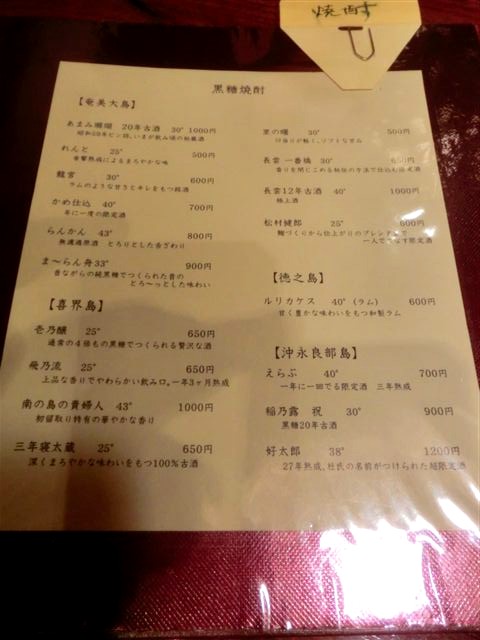 焼酎
黒糖焼酎
【奄美大島】
あまみ珊瑚 20年古酒 30° 1000円
れんと 25° 500円
音響熟成によるまろやかな味
龍宮 30° 600円
ラムのような甘さとキレをもつ銘酒
かめ仕込 40° 700円
年に一度の限定酒
らんかん 43° 800円
無濾過原酒 とろりとした舌ざわり
ま〜らん舟33° 900円
昔ながらの純黒糖でつくられた昔の
どろ〜っとした味わい
【喜界島】
壱乃醸 25° 650円
通常の4倍もの黒糖でつくられる贅沢な酒
飛乃流 25° 650円
上品な香りでやわらかい飲み口。一年3ヶ月熟成
南の島の貴婦人 43° 1000円
初留取り特有の華やかな香り
三年寝太蔵 25° 650円
深くまろやかな味わいをもつ100%古酒
里の曙 30° 500円
口当りが軽く、ソフトな甘み
長雲 一番橋 30° 650円
香りを閉じこめる秘伝の方法で仕込む
長雲12年古酒 40° 1000円
極上酒
松村健郎 25° 600円
麹づくりから仕上がりのブレンドまで
一人で
限定酒
【徳之島】
ルリカケス 40° (ラム) 600円
甘く豊かな味わいをもつ和製ラム
【沖永良部島】
えらぶ 40° 700円
一年に一回でる限定酒 三年熟成
稲乃露 祝 30° 900円
黒糖20年古酒
好太郎 38° 1200円
27年熟成、杜氏の名前がつけられた超限定酒